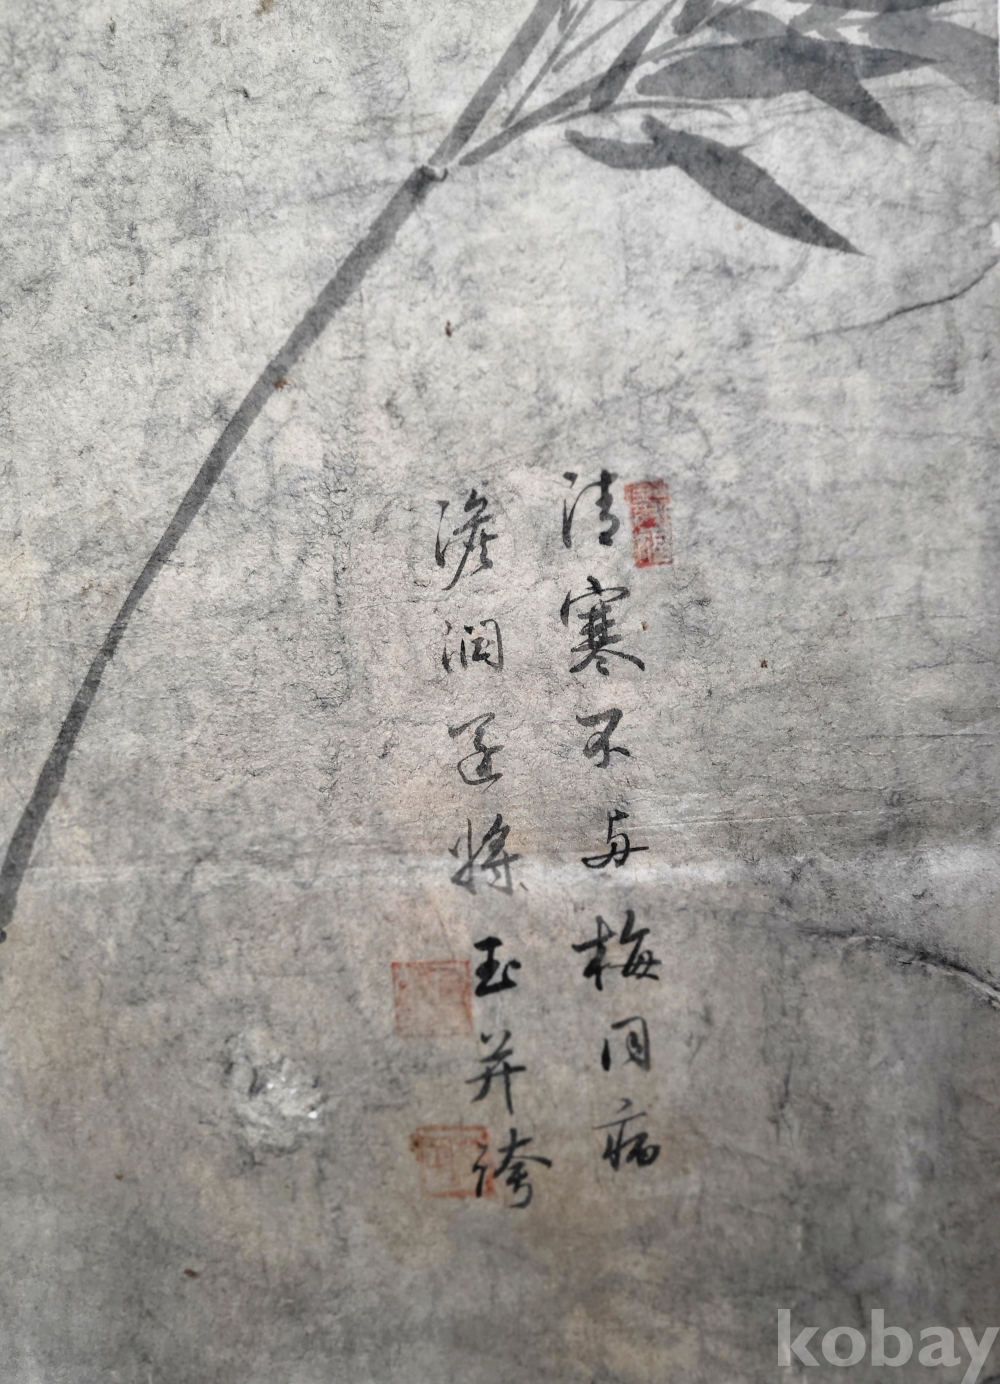 清寒不与梅同病
澹润还将玉并誇
kobay